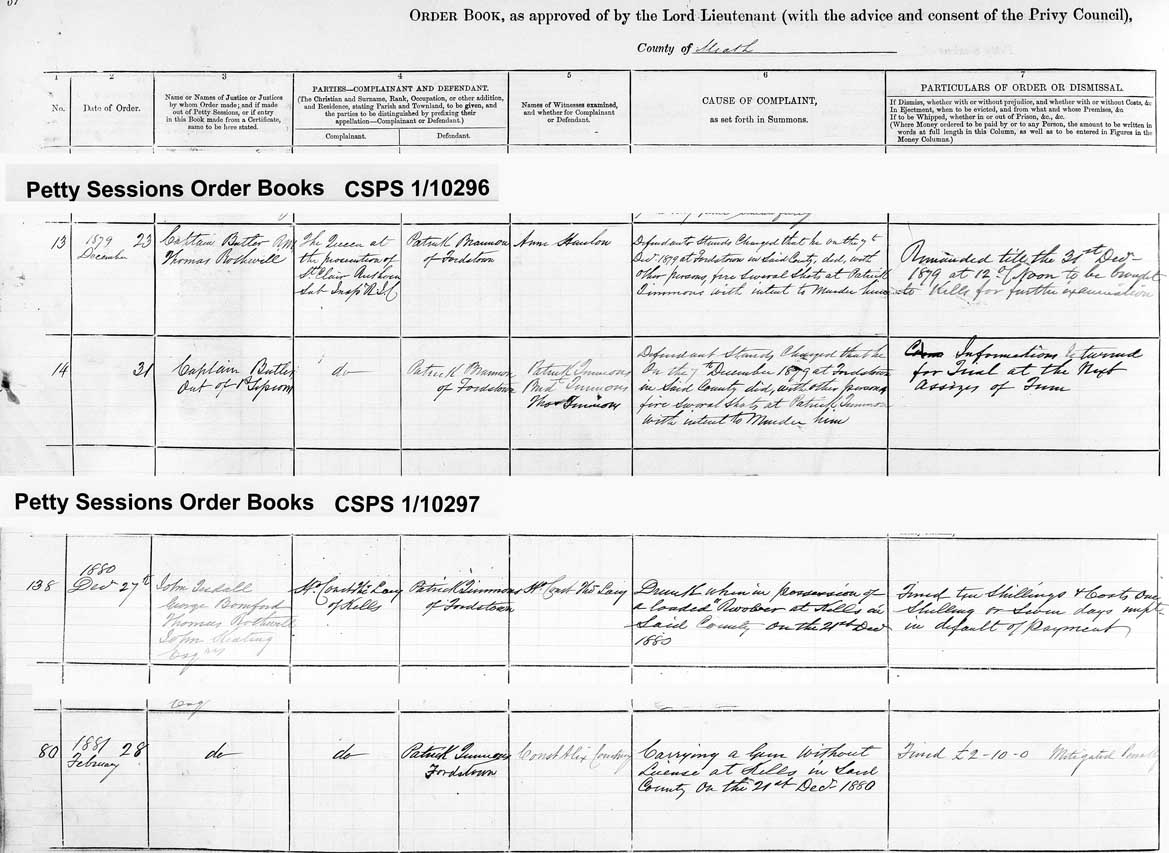 ORDER BOOK, as approved of by the Lord Lieutenant (with the advice and consent of the Privy Council),
County of Meath
1 2 3 4 5 6 7
No.
Date of Order.
Name or Names of Justice or Justices
by whom Order made; and if made
out of Petty Sessions, or if entry
in this Book made from a Certificate,
same to be here stated.
PARTIES—COMPLAINANT AND DEFENDANT.
(The Christian and Surname, Rank, Occupation, or other addition,
and Residence, stating Parish and Townland, to be given, and
the parties to be distinguished by prefixing their
appellation—Complainant or Defendant.)
Complainant. Defendant.
Names of Witnesses examined,
and whether for Complainant
or Defendant.
CAUSE OF COMPLAINT,
as set forth in Summons.
PARTICULARS OF ORDER OR DISMISSAL.
If Dismiss, whether with or without prejudice, and whether with or without Costs, &c
In Ejectment, when to be evicted, and from what and whose Premises, &c
If to be Whipped, whether in or out of Prison, &c., &c.
(Where Money ordered to be paid by or to any Person, the amount to be written in
words at full length in this Column, as well as to be entered in Figures in the
Money Columns.)
Petty Sessions Order Books CSPS 1/10296
13
1879 23
December
Captain Butler RM
Thomas Rothwell
The Queen at
the prosecution of
St Clair
Sub Inspr R.I.C
Patrick Brannon
of Fordstown
Anne Hanlon
Defendant Stands Charged that he on the 7th
Decr 1879 at Fordstown in Said County, did, with
other persons, fire Several Shots at Patrick
Timmons with intent to Murder him
Remanded till the 31st Decr
1879 at 12 o'C Noon to be brought
to Kells for further examination
14
31
Captain Butler
Out of P Session
do
Patrick Brannon
of Fordstown
Patrick Timmons
Timmons
Thos Timmons
Defendant Stands Charged that he
On the 7th December 1879 at Fordstown
in Said County did, with other persons
fire Several Shots at Patrick Timmons
with intent to Murder him
Informations returned
for Trial at the Next
Assizes of Trim
Petty Sessions Order Books CSPS 1/10297
138
1880
Decr 27th
John Tisdall
George Bomford
Thomas Rothwell
John Keating
Esqrs
Hd Const Thos Lacy
of Kells
Patrick Timmons
of Fordstown
Hd Const Thos Lacy
Drunk when in possession of
a loaded Revolver at Kells in
Said County on the 21st Decr
1880
Fined ten Shillings & Costs One
Shilling or Seven days impt
in default of payment
80
1881 28
February
do
do
Patrick Timmons
Fordstown
Const Alix
Carrying a Gun Without
License at Kells in Said
County On the 21st Decr 1880
Fined £2-10-0 Mitigated Penalty